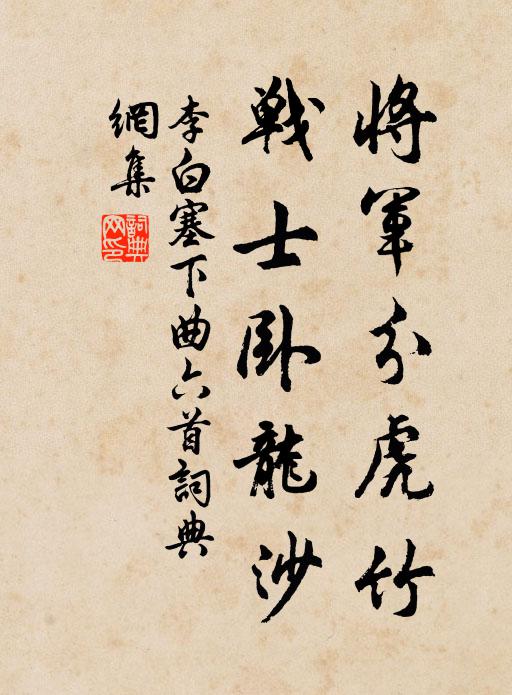 將軍分虎竹
戰士卧龍沙
李白塞下曲六首詞典
網集
詞典網印